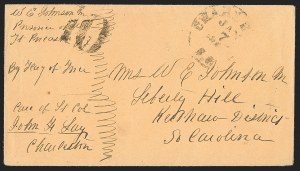 W E Johnson
Prisoner
Ft
By Way of
Care of Lt Col
John F Lay
Charleston
Mrs W E Johnson
Liberty Hill
Kershaw District
So Carolina